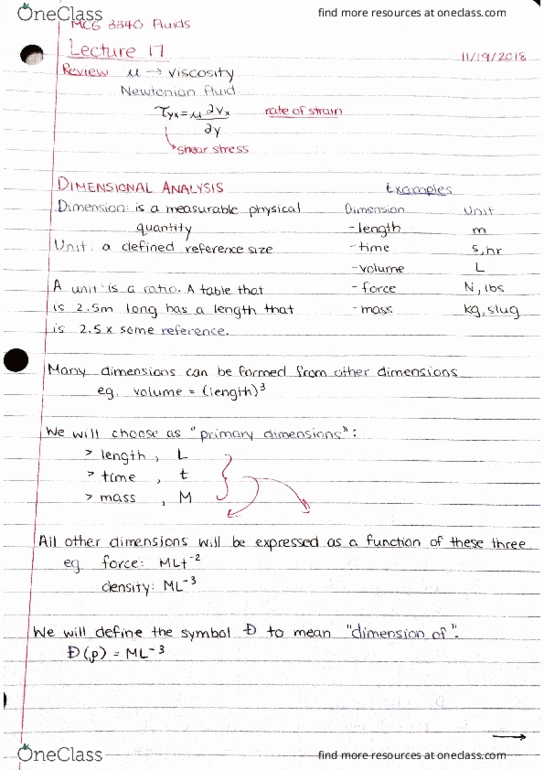 OneClass
find more resources at oneclass.com
MCG 3340 Fluids
Lecture 17
11/19/2018
Review μ → viscosity
Newtonian fluid
τyx = μ ∂vx/∂y rate of strain
shear stress
DIMENSIONAL ANALYSIS Examples
Dimension: is a measurable physical Dimension Unit
quantity - length m
Unit: a defined reference size - time s, hr
- volume L
A unit is a ratio. A table that - force N, lbs
is 2.5m long has a length that - mass kg, slug
is 2.5x some reference.
Many dimensions can be formed from other dimensions
eg. volume = (length)³
We will choose as "primary dimensions":
> length , L
> time , t
> mass , M
All other dimensions will be expressed as a function of these three
eg. force: MLt⁻²
density: ML⁻³
We will define the symbol Đ to mean "dimension of".
Đ(ρ) = ML⁻³
OneClass
find more resources at oneclass.com